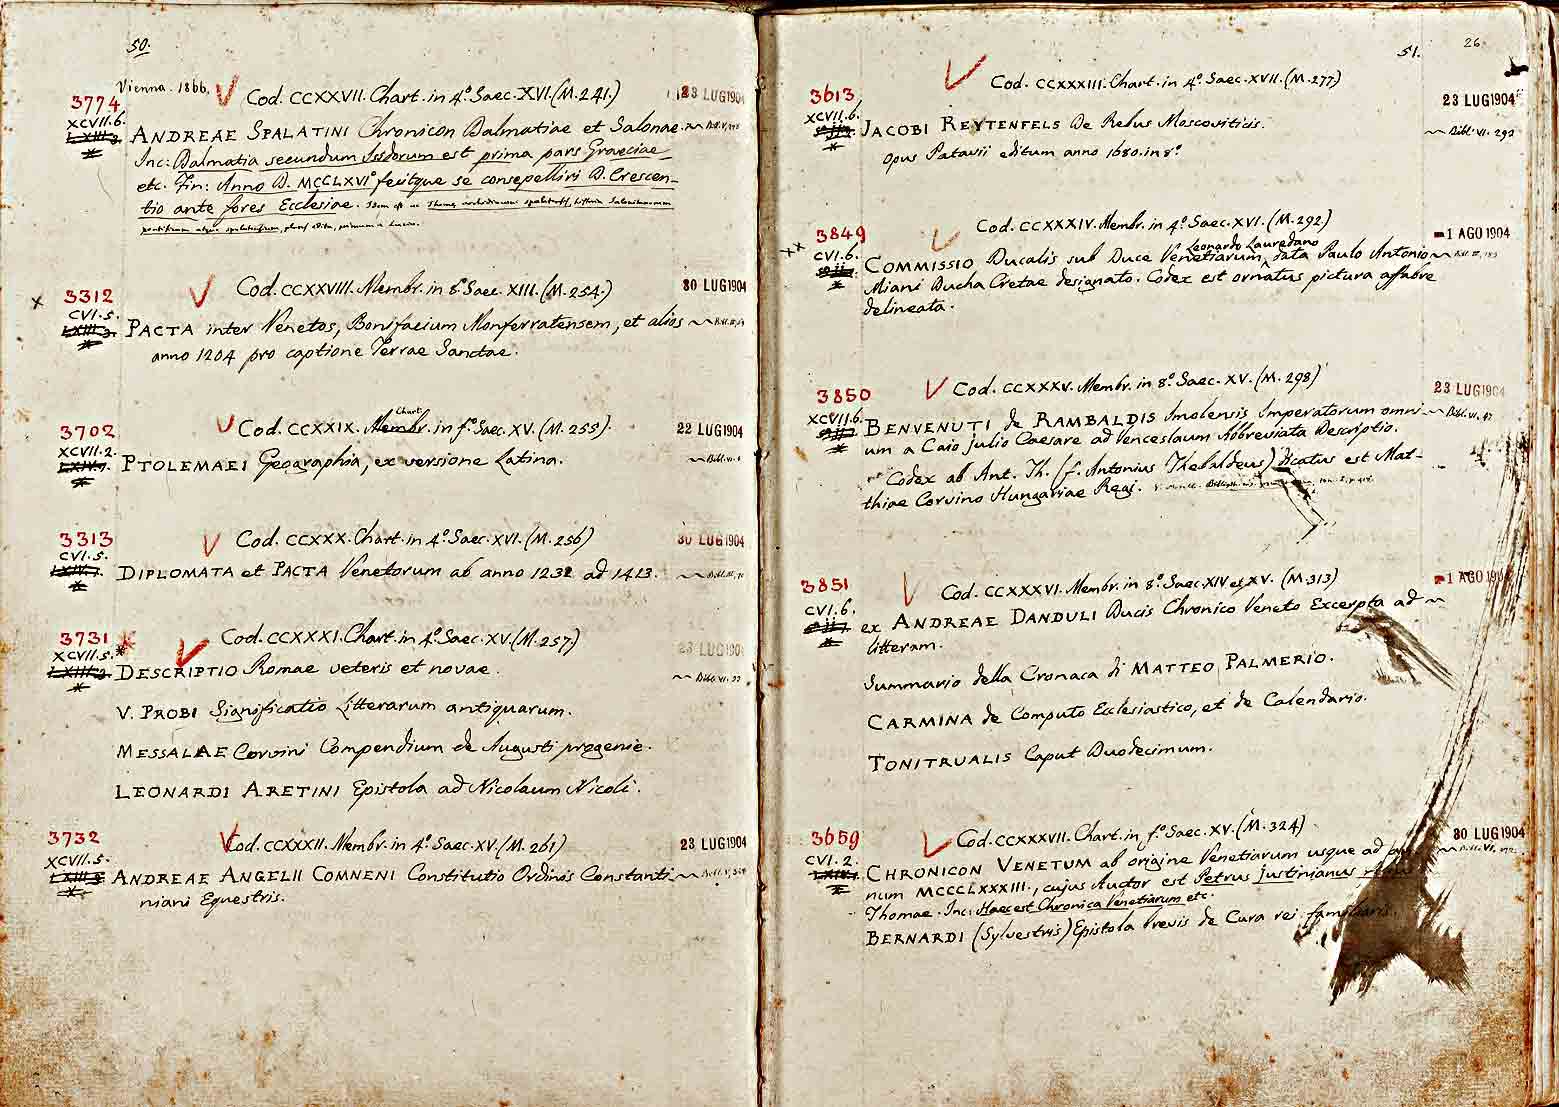 50.
Vienna. 1866.
3774
Cod. CCXXVII. Chart. in 4º. Saec. XVI. (M. 241.)
23 LUG 1904
XCVII.6.
ANDREAE SPALATINI Chronicon Dalmatiae et Salonae.
Inc: Dalmatia secundum Issdorum est prima pars Graeciae
etc. Fin: Anno D. MCCLXVIº fecitque se consepelliri D. Crescen-
tio ante fores Ecclesiae.
3312
Cod. CCXXVIII. Membr. in 8º. Saec. XIII. (M. 254.)
30 LUG 1904
CVI.5.
PACTA inter Venetos, Bonifacium Monferratensem, et alios
anno 1204 pro captione Terrae Sanctae.
3702
Chart.
Cod. CCXXIX. Membr. in fº. Saec. XV. (M. 255).
22 LUG 1904
XCVII.2.
PTOLEMAEI Geographia, ex versione Latina.
3313
Cod. CCXXX. Chart. in 4º. Saec. XVI. (M. 256)
30 LUG 1904
CVI.5.
DIPLOMATA et PACTA Venetorum ab anno 1232 ad 1413.
3731
Cod. CCXXXI. Chart. in 4º. Saec. XV. (M. 257)
23 LUG 1904
XCVII.5.
DESCRIPTIO Romae veteris et novae.
V. PROBI Significatio Litterarum antiquarum.
MESSALAE Corvini Compendium de Augusti progenie.
LEONARDI ARETINI Epistola ad Nicolaum Nicoli.
3732
Cod. CCXXXII. Membr. in 4º. Saec. XV. (M. 261)
23 LUG 1904
XCVII.5.
ANDREAE ANGELII COMNENI Constitutio Ordinis Constanti-
niani Equestris.
51.
26
3613
Cod. CCXXXIII. Chart. in 4º. Saec. XVII. (M. 277)
23 LUG 1904
XCVII.6.
JACOBI REYTENFELS De Rebus Moscoviticis.
Bibl. VI. 292
Opus Patavii editum anno 1680. in 8º.
3849
Cod. CCXXXIV. Membr. in 4º. Saec. XVI. (M. 292)
-1 AGO 1904
CVI.6.
Leonardo Lauredano
COMMISSIO Ducalis sub Duce Venetiarum, data Paulo Antonio
Miani Ducha Cretae designato. Codex est ornatus pictura affabre
delineata.
3850
Cod. CCXXXV. Membr. in 8º. Saec. XV. (M. 298)
23 LUG 1904
XCVII.6.
BENVENUTI de RAMBALDIS Imolensis Imperatorum omni-
um a Caio Julio Caesare ad Venceslaum Abbreviata Descriptio.
Codex ab Ant. Th. (f. Antonius Thebaldeus) dicatus est Mat-
thiae Corvino Hungariae Regi.
3851
Cod. CCXXXVI. Membr. in 8º. Saec. XIV et XV. (M. 313)
-1 AGO 1904
CVI.6.
ex ANDREAE DANDULI Ducis Chronico Veneto Excerpta ad
litteram.
Summario della Cronaca di MATTEO PALMERIO.
CARMINA de Computo Ecclesiastico, et de Calendario.
TONITRUALIS Caput Duodecimum.
3659
Cod. CCXXXVII. Chart. in fº. Saec. XV. (M. 324)
30 LUG 1904
CVI.2.
CHRONICON VENETUM ab origine Venetiarum usque ad an
num MCCCLXXXIII., cujus Auctor est Petrus Justinianus
Thomae. Inc: Haec est Chronica Venetiarum etc.
BERNARDI (Sylvestris) Epistola brevis de Cura rei familiaris.